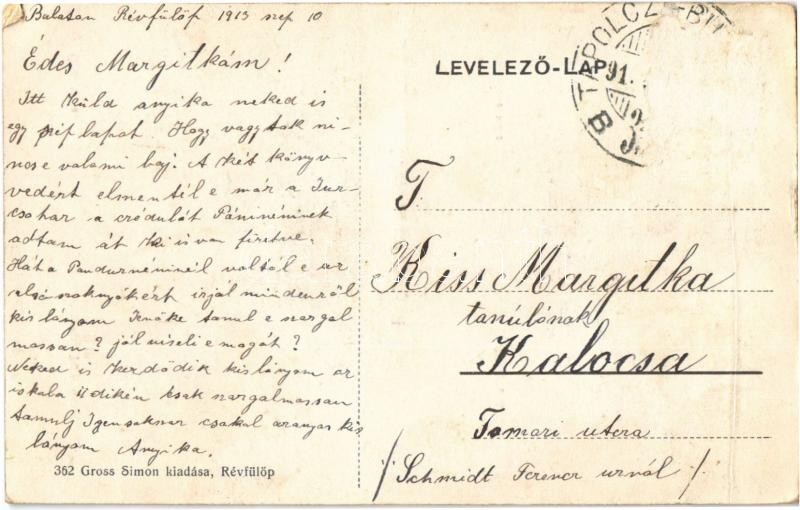 Balaton Révfülöp 1913 szep 10
Édes Margitkám!
Itt küld anyika neked is
egy szép lapot. Hogy vagytok ni-
ncse valami baj. A két könyv
vedért elmentél e már a
a crédulát Páninéninek
adtam át ki is van fizetve.
Hát a Pandurnéninél voltál e az
alsó szoknyákért irjál mindenről
kis lányom tanul e szorgal
massan? jól viseli e magát?
Neked is kis lányom az
iskola csak szorgalmassan
tanulj csakul aranyos kis
lányom Anyika.
352 Gross Simon kiadása, Révfülöp
LEVELEZŐ-LAP
TAPOLCZA-BU
91
B
T.
Kiss Margitka
tanúlónak
Kalocsa
Tomori utcza
/Schmidt Ferencz urnál/.